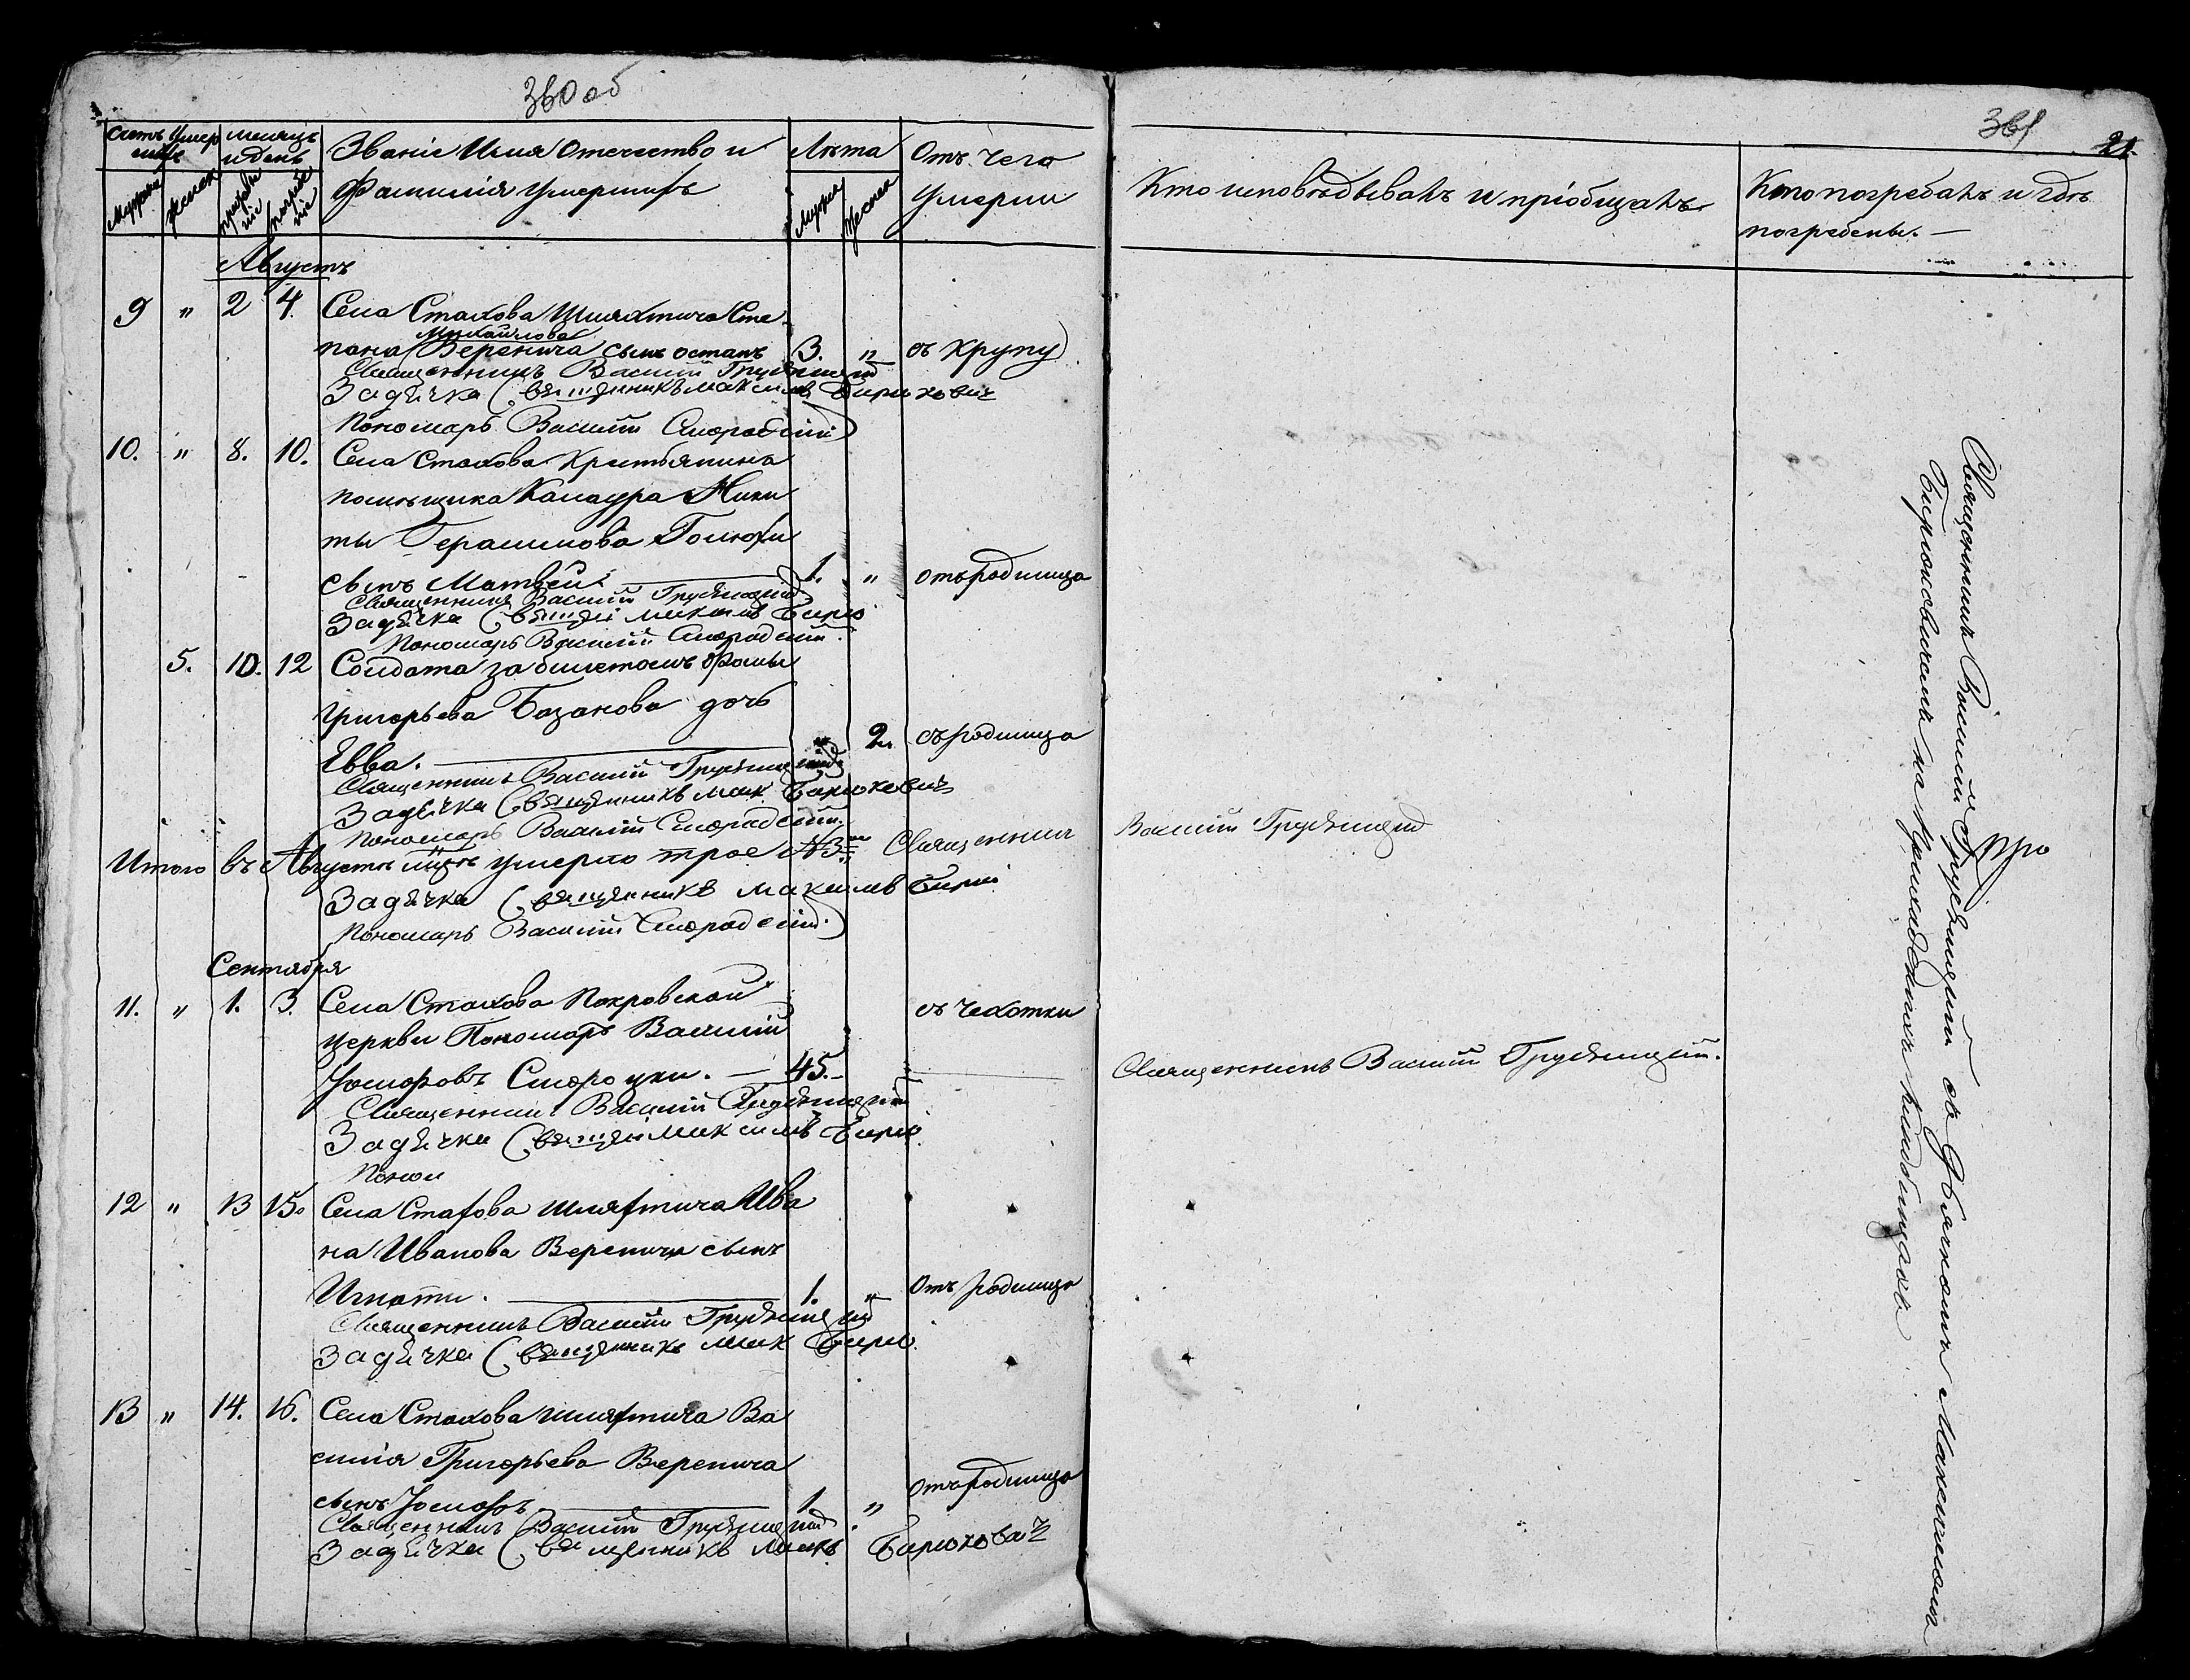 360 об
361
21.
Счетъ Умер
шихъ
Месяцъ
и день
Званіе Имя Отечество и
Фамилія Умершихъ
Лѣта
Отъ чего
Умерли
Кто исповѣдывалъ и пріобщалъ
Кто погребалъ и гдѣ
погребены. —
Августъ
9 " 2 4. Села Стахова Шляхтича Сте-
Михайлова
пана Веренича сынъ остапъ 3. " съ крупу
Священникъ Василій Грудзинскій
За дьячка Священникъ Максимъ Бирюковичъ
Пономаръ Василій Смородскій
10. " 8. 10. Села Стахова Крестьянина
помѣщика Калаура Ники
ты Герасимова Голюхи
сынъ Матвей. 1. " отъ родимца
Священникъ Василій Грудзинскій
За дьячка Священ Максимъ Бирю
Пономаръ Василій Смородскій
5. 10. 12 Солдата за билетомъ Фомы
Григорьева Базанова дочь
Евва. " 2. съ родимца
Священникъ Василій Грудзинскій
За дьячка Священникъ Мак. Бирюковичъ
Пономаръ Василій Смородскій.
Итого въ Августѣ мцѣ умерло трое №3 Священник Василій Грудзинскій
За дьячка Священникъ Максимъ Бирю
Пономаръ Василій Смородскій
Сентября
11. " 1. 3. Села Стахова Покровской съ чехотки
церкви Пономаръ Василій
Іосифовъ Смороцки. — 45. Священникъ Василій Грудзинскій.
Священник Василій Грудзинскій
За дьячка Священ Максимъ Бирю
Поном
12 " 13 15. Села Стахова шляхтича Ива
на Иванова Веренича сынъ
Игнати. 1. " Отъ родимца
Священникъ Василій Грудзинскій
За дьячка Священникъ Мак Бирю.
13 " 14. 16. Села Стахова шляхтича Ва
силія Григорьева Веренича
сынъ Іосифъ 1. " Отъ родимца
Священник Василій Грудзинскій
За дьячка Священникъ Макъ Бирюковичъ
Священникъ Василій Грудзинскій съ Дьячкомъ Максимомъ
Бирюковичемъ на Приходскихъ кладбищахъ